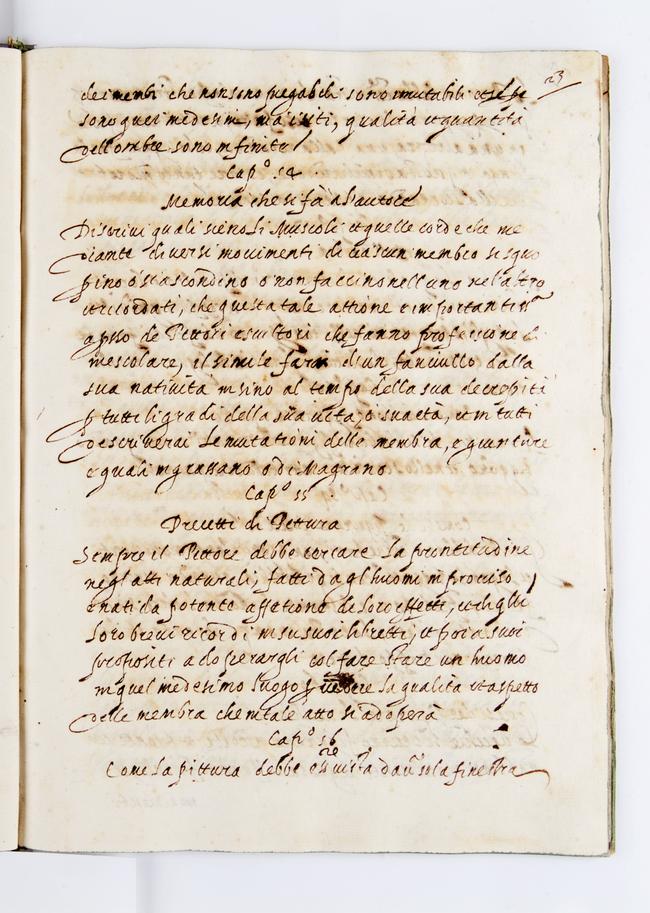 23
de i membi che non sono piegabili sono mutabili et
sono quei medesimi, ma i siti, qualità et quantita
dell ombre sono infinite
Cap.º 54
Memoria che si fà al'autore
Discrivi quali sieno li Muscoli et quelle corde che me
diante diversi movimenti di ciascun membro si sco
pino o si ascondino o non faccino nell'uno nel altro
et ricordati, che questa tale attione è importantis.ma
apresso de Pittori e scultori che fanno professione di
mescolare, il simile farai d'un fanciullo dalla
sua natività insino al tempo della sua decrepità
p tutti li gradi della sua vita, o sua età, et in tutti
descriverai le mutationi delle membra, e giunture
e quali ingrassano o di Magrano
Cap.º 55
Precetti di Pittura
Sempre il Pittore debbe cercare la prontitudine
negl'atti naturali, fatti da gl'huomi improviso
e nati da potente affetione de loro effetti, et di quelli
loro brevi ricordi in su suoi libretti, et poi a suoi
propositi adoperargli col fare stare un huomo
in quel medesimo luogo p vedere la qualità et aspetto
delle membra che in tale atto si adopera
Cap.º 56
Come la pittura debbe esser vista da ũ sola finestra